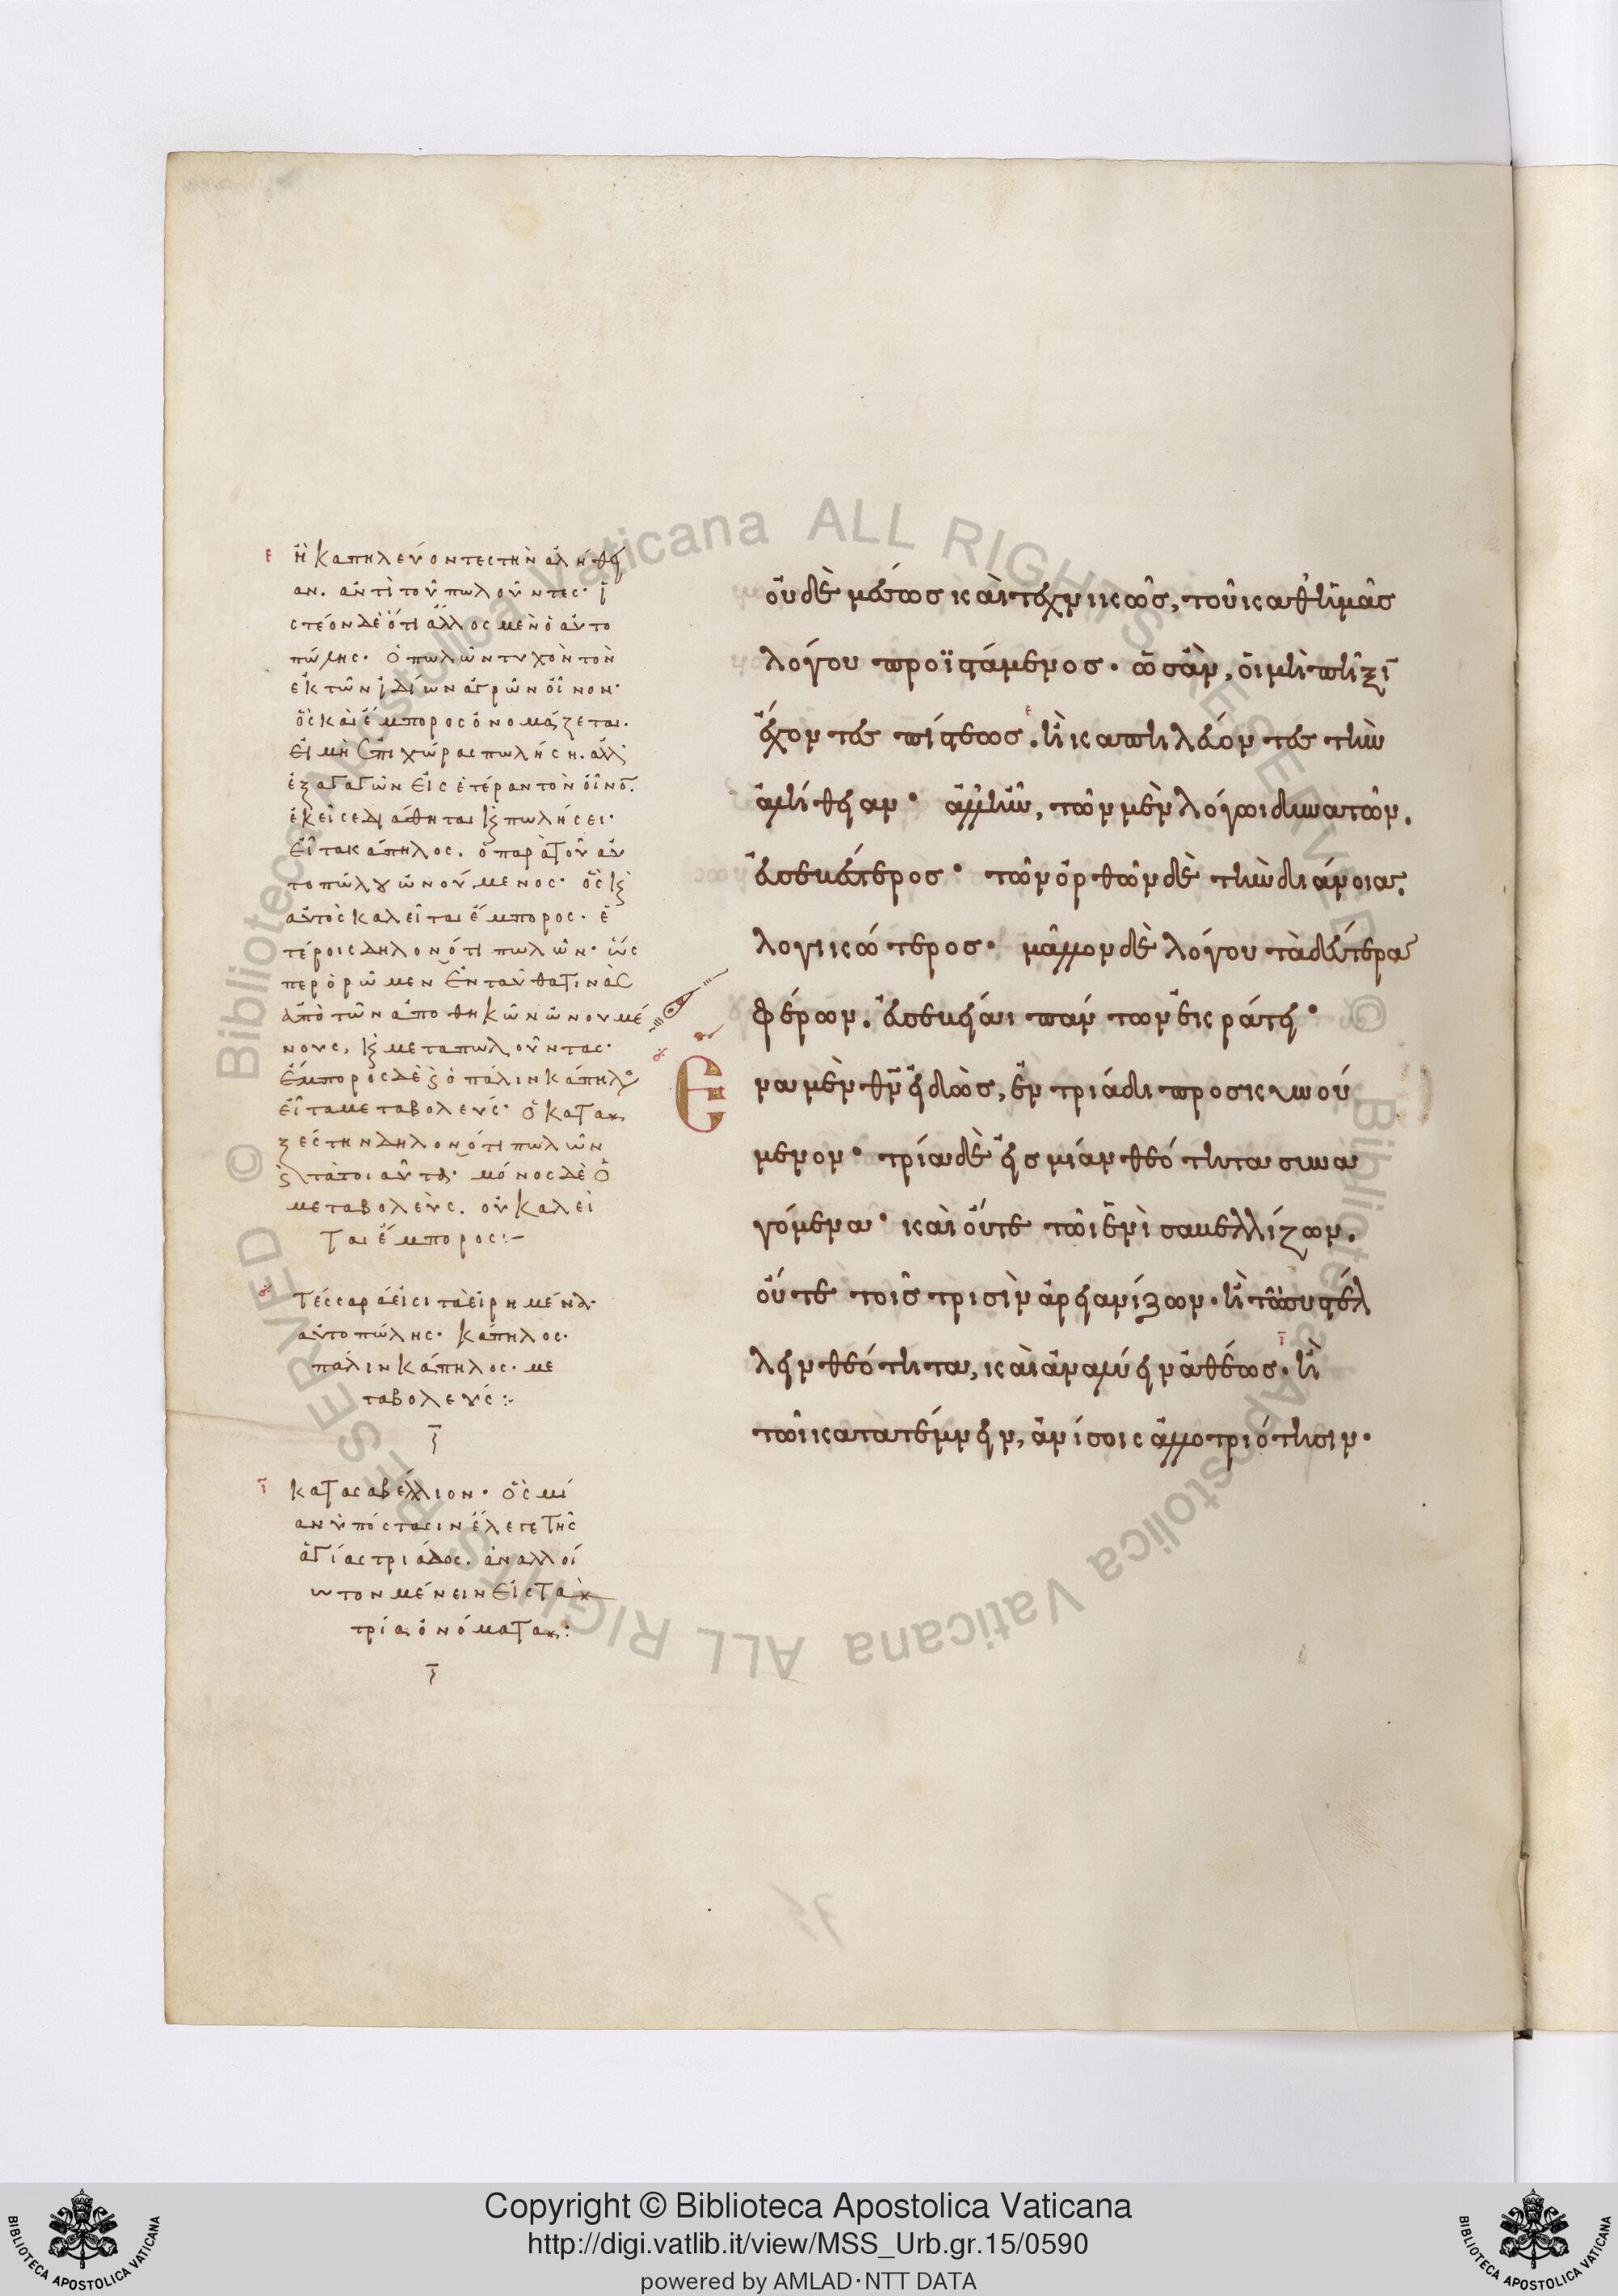 ἢ καπηλεύοντες τὴν ἀλήθει
αν. ἀντὶ τοῦ πωλοῦντες· ἰ
στέον δὲ ὅτι ἄλλος μὲν ὁ αὐτο
πώλης· ὁ πωλῶν τυχὸν τὸν
ἐκ τῶν ἰδίων ἀγρῶν οἶνον·
ὃς καὶ ἔμπορος ὀνομάζεται.
εἰ μὴ ἐπιχώρας πωλήσῃ. ἀλλ'
ἐξαγαγὼν εἰς ἑτέραν τὸν οἶνο̅.
ἐκεῖσε διάθηται κ πωλήσει·
εἶτα κάπηλος. ὁ παρὰ τοῦ αὐ
τοπώλου ὠνούμενος· ὃς κ
αὐτὸς καλεῖται ἔμπορος· ἑ
τέροις δηλονότι πωλῶν· ὥς
περ ὁρῶμεν ἐνταῦθα τινὰς
ἀπὸ τῶν ἀποθηκῶν ὠνουμέ
νους, κ μεταπωλοῦντας·
ἔμπορος δὲ κ ὁ παλινκάπηλο
εἶτα μεταβολεύς· ὁ κατὰ
ξέστην δηλονότι πωλῶν
κ τὰ τοιαῦτα· μόνος δὲ ὁ
μεταβολεὺς. οὐ καλεῖ
ται ἔμπορος:–
Τέσσαρα εἰσι τὰ εἰρημένα·
αὐτοπώλης· κάπηλος·
παλινκάπηλος· με
ταβολεύς:
κατὰ σαβέλλιον· ὃς μί
αν ὑπόστασιν ἔλεγε τῆς
ἁγίας τριάδος. ἀναλλοί
ωτον μένειν εἰς τὰ
τρία ὀνόματα:
οὐδὲ μέσως καὶ τεχνικῶς, τοῦ καθ' ἡμᾶς
λόγου προϊστάμενος. ὡς ἂν, οἱ μὴ πῆξῖ
ἔχοντες πίστεως. ἢ καπηλεύοντες τὴν
ἀλήθειαν· ἀλλ' ἦν, τῶν μὲν λόγωι δυνατῶν.
εὐσεβέστερος· τῶν εὐσεβῶν δὲ τὴν διάνοιαν.
λογικώτερος· μᾶλλον δὲ λόγου τὰ δεύτερα
φέρων. εὐσεβείαι πάντων ἐκράτει·
Ε
να μὲν θν εἰδὼς, ἐν τριάδι προσκυνού
μενον· τρία δὲ εἰς μίαν θεότητα συνα
γόμενα· καὶ οὔτε τῶι ἑνὶ σαβελλίζων.
οὔτε τοῖς τρισὶν ἀρειανίζων· ἢ τῶ συστέλ
λειν θεότητα, καὶ ἀναλύειν ἀθέως· ἢ
τῶι κατατέμνειν, ἀνίσοις ἀλλοτριότησιν·
Copyright © Biblioteca Apostolica Vaticana
http://digi.vatlib.it/view/MSS_Urb.gr.15/0590
powered by AMLAD·NTT DATA